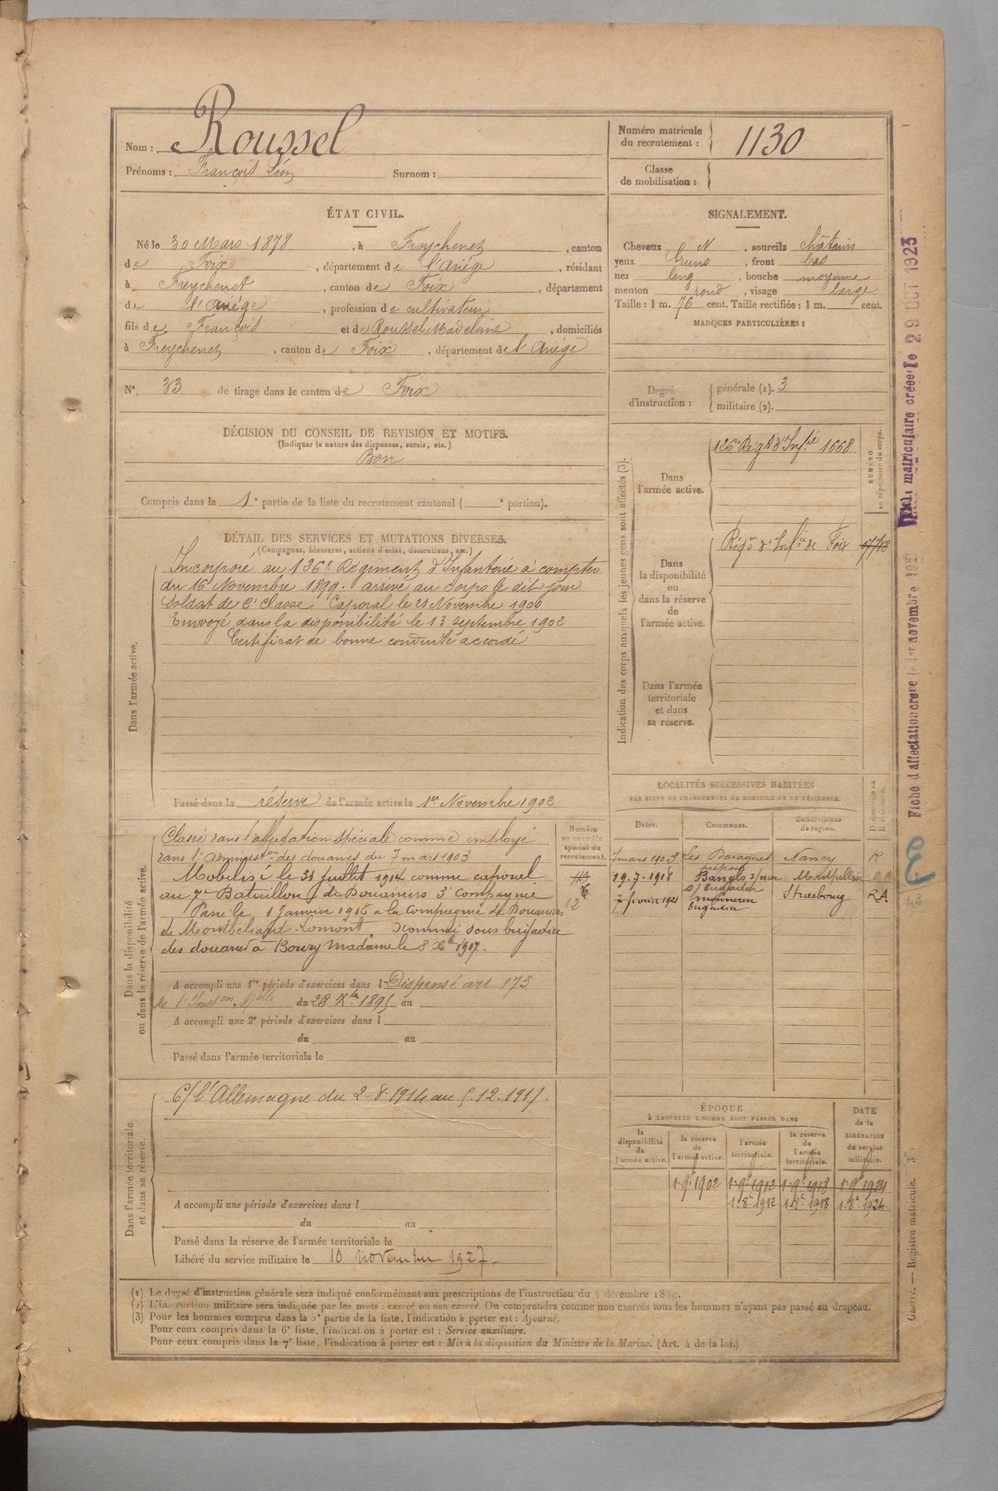 Nom : Roussel
Prénoms : François Léon Surnom :
Numéro matricule du recrutement : 1130
Classe de mobilisation :
ÉTAT CIVIL.
Né le 30 Mars 1878, à Freychenet, canton
de Foix, département de l'Ariège, résidant
à Freychenet, canton de Foix, département
de l'Ariège, profession de cultivateur
fils de François et de Roussel Madeleine, domiciliés
à Freychenet, canton de Foix, département de l'Ariège
N° 33 de tirage dans le canton de Foix
SIGNALEMENT.
Cheveux N, sourcils châtains
yeux bruns, front bas
nez long, bouche moyenne
menton rond, visage large
Taille : 1 m. 76 cent. Taille rectifiée : 1 m. cent.
MARQUES PARTICULIÈRES :
Degré d'instruction : générale (2). 3
militaire (2).
DÉCISION DU CONSEIL DE REVISION ET MOTIFS.
(Indiquer la nature des dispenses, sursis, etc.)
Bon
Compris dans la 1e partie de la liste du recrutement cantonal ( e portion).
DÉTAIL DES SERVICES ET MUTATIONS DIVERSES.
(Campagnes, blessures, actions d'éclat, décorations, etc.)
Dans l'armée active.
Incorporé au 126e Régiment d'Infanterie à compter
du 16 Novembre 1899. arrivé au corps le dit jour
Soldat de 2e classe Caporal le 21 Novembre 1900
Envoyé dans la disponibilité le 13 Septembre 1902
Certificat de bonne conduite accordé
Passé dans la réserve de l'armée active le 1er Novembre 1902
Indication des corps auxquels les jeunes gens sont affectés (3).
NUMÉRO au répertoire du corps.
Dans l'armée active. 126e Régt d'Infie 1668
Dans la disponibilité ou dans la réserve de l'armée active. Régt d'Infie de Foix
Dans l'armée territoriale et dans sa réserve.
Dans la disponibilité ou dans la réserve de l'armée active.
Numéro au contrôle spécial du recrutement.
Classé dans l'affectation spéciale comme employé
dans l'administon des douanes du 7 mars 1903
Mobilisé le 31 juillet 1914 comme caporal
au 7e Bataillon de Douaniers 3e Compagnie
Passé le 1 Janvier 1916 à la Compagnie de Douaniers
de Montbéliard-Lomont. Nommé sous brigadier
des douanes à Bourg Madame le 8 Xbre 1917.
A accompli une 1re période d'exercices dans l Dispensé art 173
de l'Inston Mle du 28 Xbre 1895 au
A accompli une 2e période d'exercices dans l
du au
Passé dans l'armée territoriale le
LOCALITÉS SUCCESSIVES HABITÉES
PAR SUITE DE CHANGEMENTS DE DOMICILE OU DE RÉSIDENCE.
Dates. Communes. Subdivisions de région. D. domicile ou R. résidence.
7 mars 1903 Les Baraques Nancy R
19.7.1918 Banyuls s/mer Montpellier R A
7 février 1921 Strasbourg R A
Dans l'armée territoriale et dans sa réserve.
C/ l'Allemagne du 2-8-1914 au 5.12.1917.
A accompli une période d'exercices dans l
du au
Passé dans la réserve de l'armée territoriale le
Libéré du service militaire le 10 novembre 1927.
ÉPOQUE
À LAQUELLE L'HOMME DOIT PASSER DANS
la disponibilité de l'armée active. la réserve de l'armée active. l'armée territoriale. la réserve de l'armée territoriale. DATE de la LIBÉRATION du service militaire.
1.9bre 1902 1.9bre 1912 1.9bre 1918 1.9bre 1924
1.8e 1912 1.8e 1918 1.8e 1924.
(1) Le degré d'instruction générale sera indiqué conformément aux prescriptions de l'instruction du 4 décembre 1889.
(2) L'instruction militaire sera indiquée par les mots : exercé ou non exercé. On comprendra comme non exercés tous les hommes n'ayant pas passé au drapeau.
(3) Pour les hommes compris dans la 5e partie de la liste, l'indication à porter est : Ajourné.
Pour ceux compris dans la 6e liste, l'indication à porter est : Service auxiliaire.
Pour ceux compris dans la 7e liste, l'indication à porter est : Mis à la disposition du Ministre de la Marine. (Art. 4 de la loi.)
matriculaire créée le 29 OCT 1923
Fiche d'affectation créée le 1er novembre 192
Guerre. — Registre matricule. 3